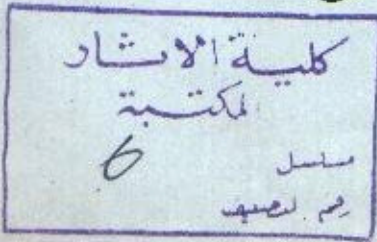 كلية الاثار
المكتبة
مسلسل 6
رقم التصنيف